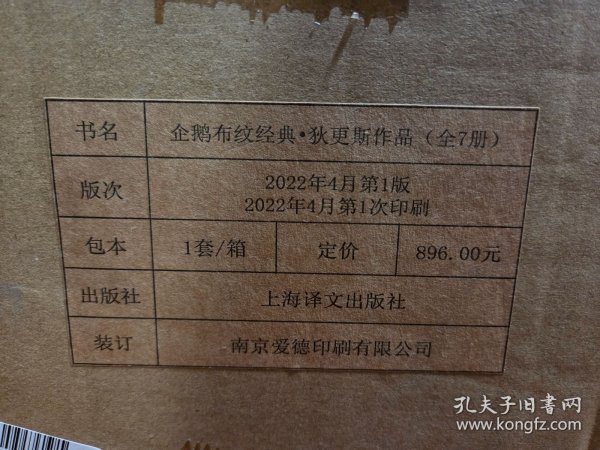 书名 企鹅布纹经典·狄更斯作品（全7册）
版次 2022年4月第1版
2022年4月第1次印刷
包本 1套/箱 定价 896.00元
出版社 上海译文出版社
装订 南京爱德印刷有限公司
孔夫子旧书网
www.kongfz.com